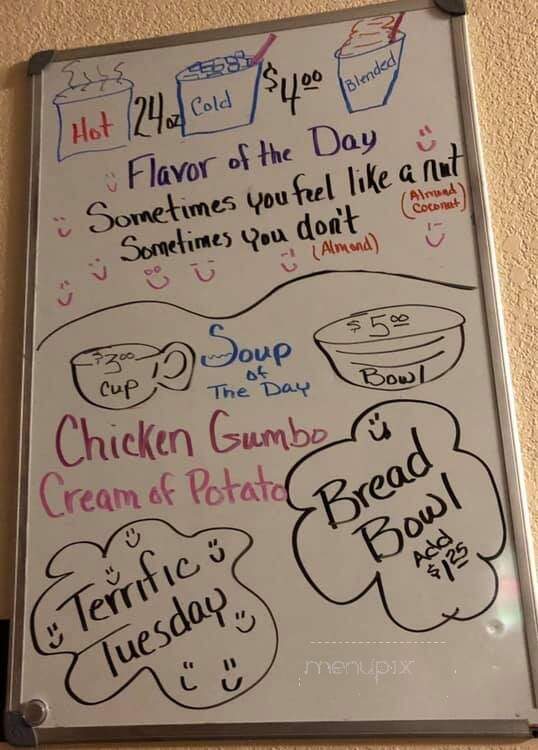 Hot
24oz
Cold
$4.00
Blended
Flavor of the Day
Sometimes you feel like a nut
(Almond
Coconut)
Sometimes you don't
(Almond)
$3.00
Cup
Soup
of
The Day
$5.00
Bowl
Chicken Gumbo
Cream of Potato
Bread
Bowl
Add
$1.25
Terrific
Tuesday
menupix